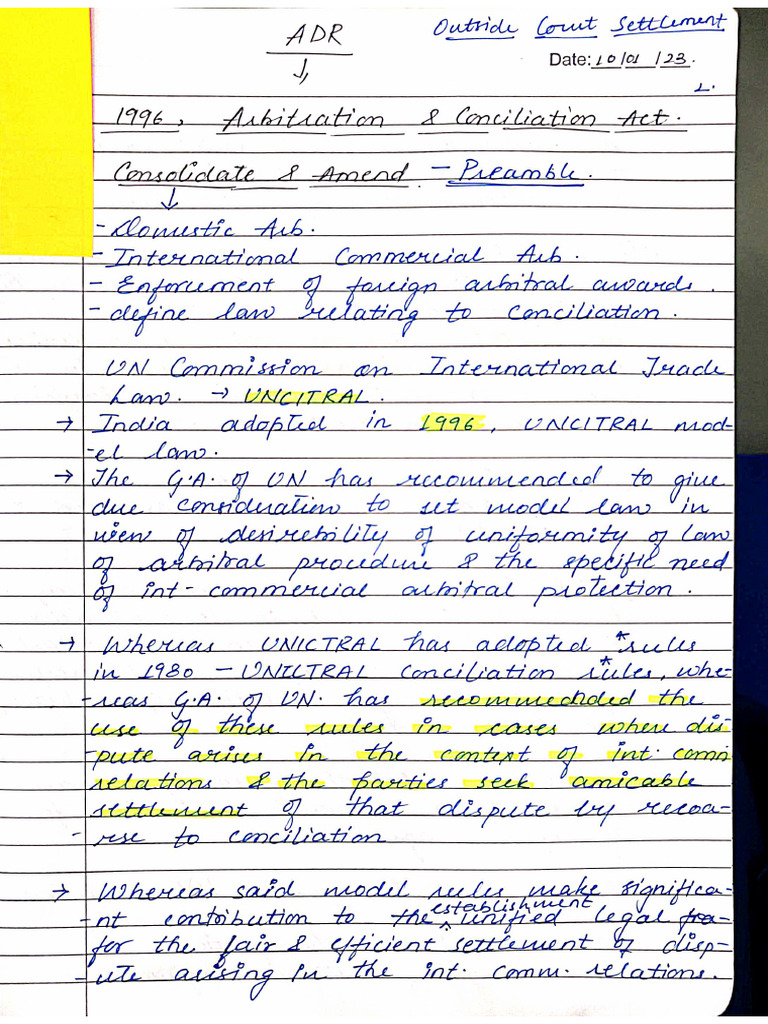 ADR
Outside Court Settlement
Date: 10/01/23.
1.
1996, Arbitration & Conciliation Act.
Consolidate & Amend - Preamble.
- Domestic Arb.
- International Commercial Arb.
- Enforcement of foreign arbitral awards.
- define law relating to conciliation.
UN Commission on International Trade
Law. → UNCITRAL.
→ India adopted in 1996, UNCITRAL mod-
-el law.
→ The G.A. of UN has recommended to give
due consideration to set model law in
view of desirebility of uniformity of law
of arbitral procedure & the specific need
of int- commercial arbitral protection.
→ Whereas UNICTRAL has adopted *rules
in 1980 - UNILTRAL conciliation *rules, whe-
-reas G.A. of UN. has recommechded the
use of these rules in cases where dis-
-pute arises in the context of int. comm
relations & the parties seek amicable
settlement of that dispute by recou-
-rse to conciliation
→ Whereas said model rules make significa-
-nt contribution to the ^establishment unified legal fra-
for the fair & efficient settlement of disp-
-ute arising in the int. comm. relations.